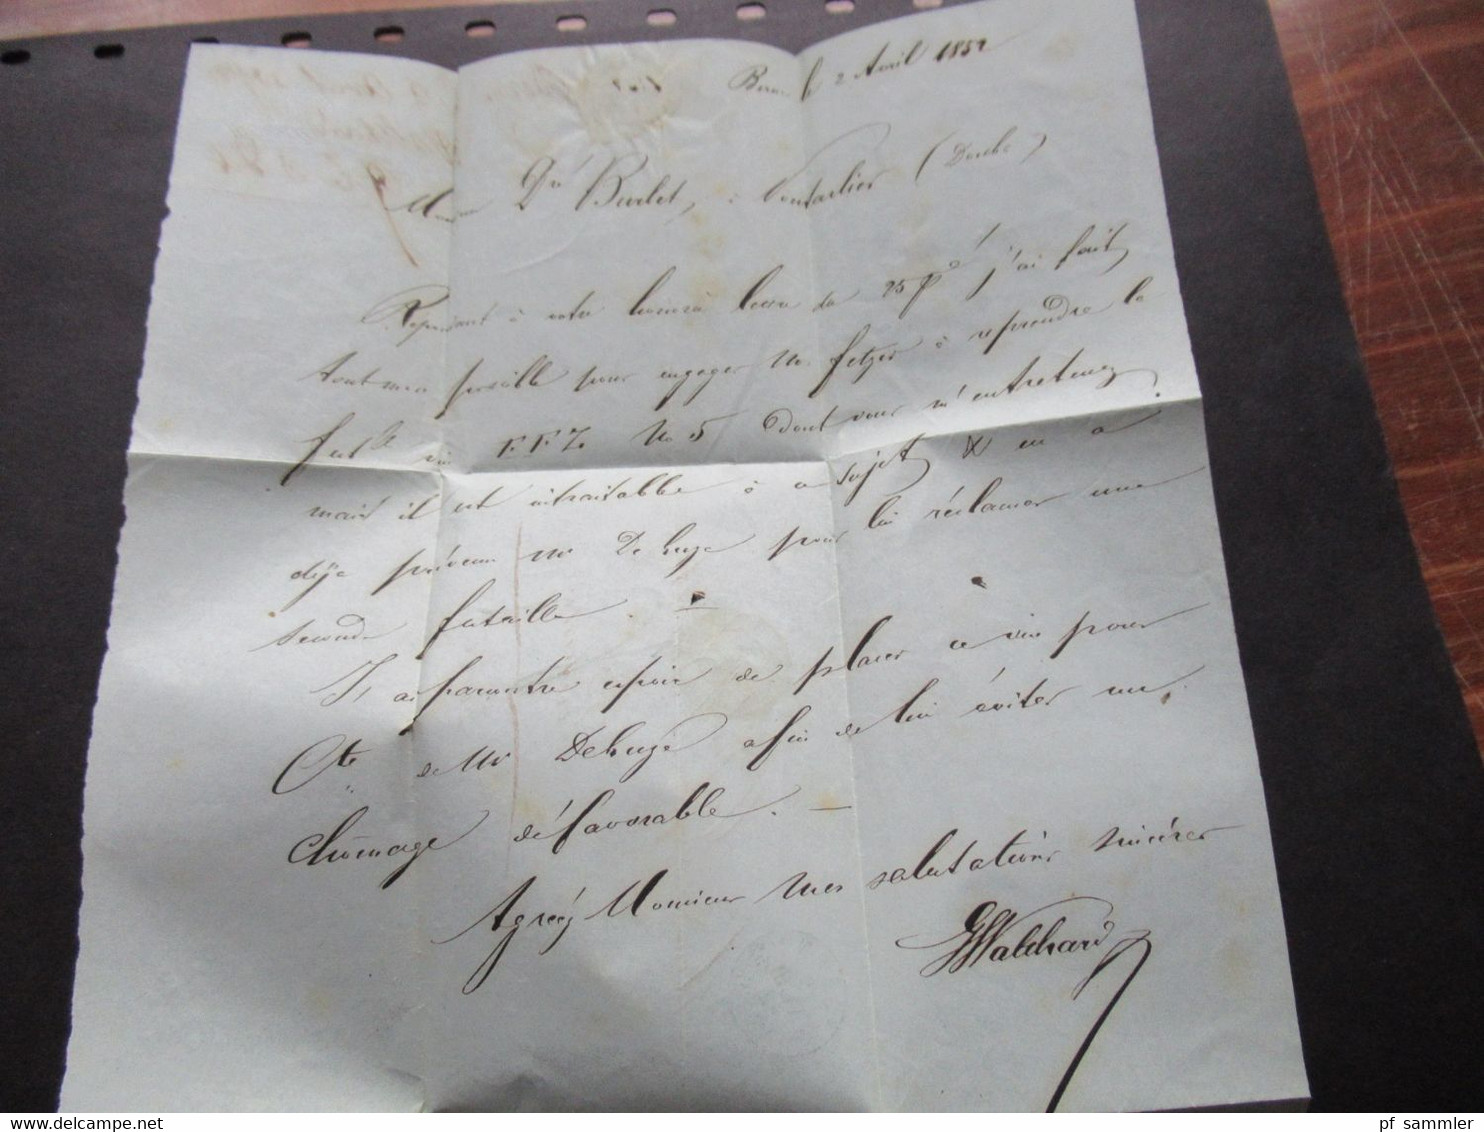 le 2 Avril 1852
Burlet, à Pontarlier (Doubs)
Répondant à votre honorée du 25 j'ai fait
tout mon possible pour engager Mr. Fetzer à reprendre le
F.F.Z No 5 dont vous m'entretenez
mais il est intraitable à ce sujet & en a
déjà prévenu Mr Dehuge pour lui réclamer une
seconde futaille. —
J'ai par contre espoir de placer ce vin pour
Cte de Mr Dehuge afin de lui éviter un
chômage défavorable. —
Agréez Monsieur mes salutations sincères
pf sammler